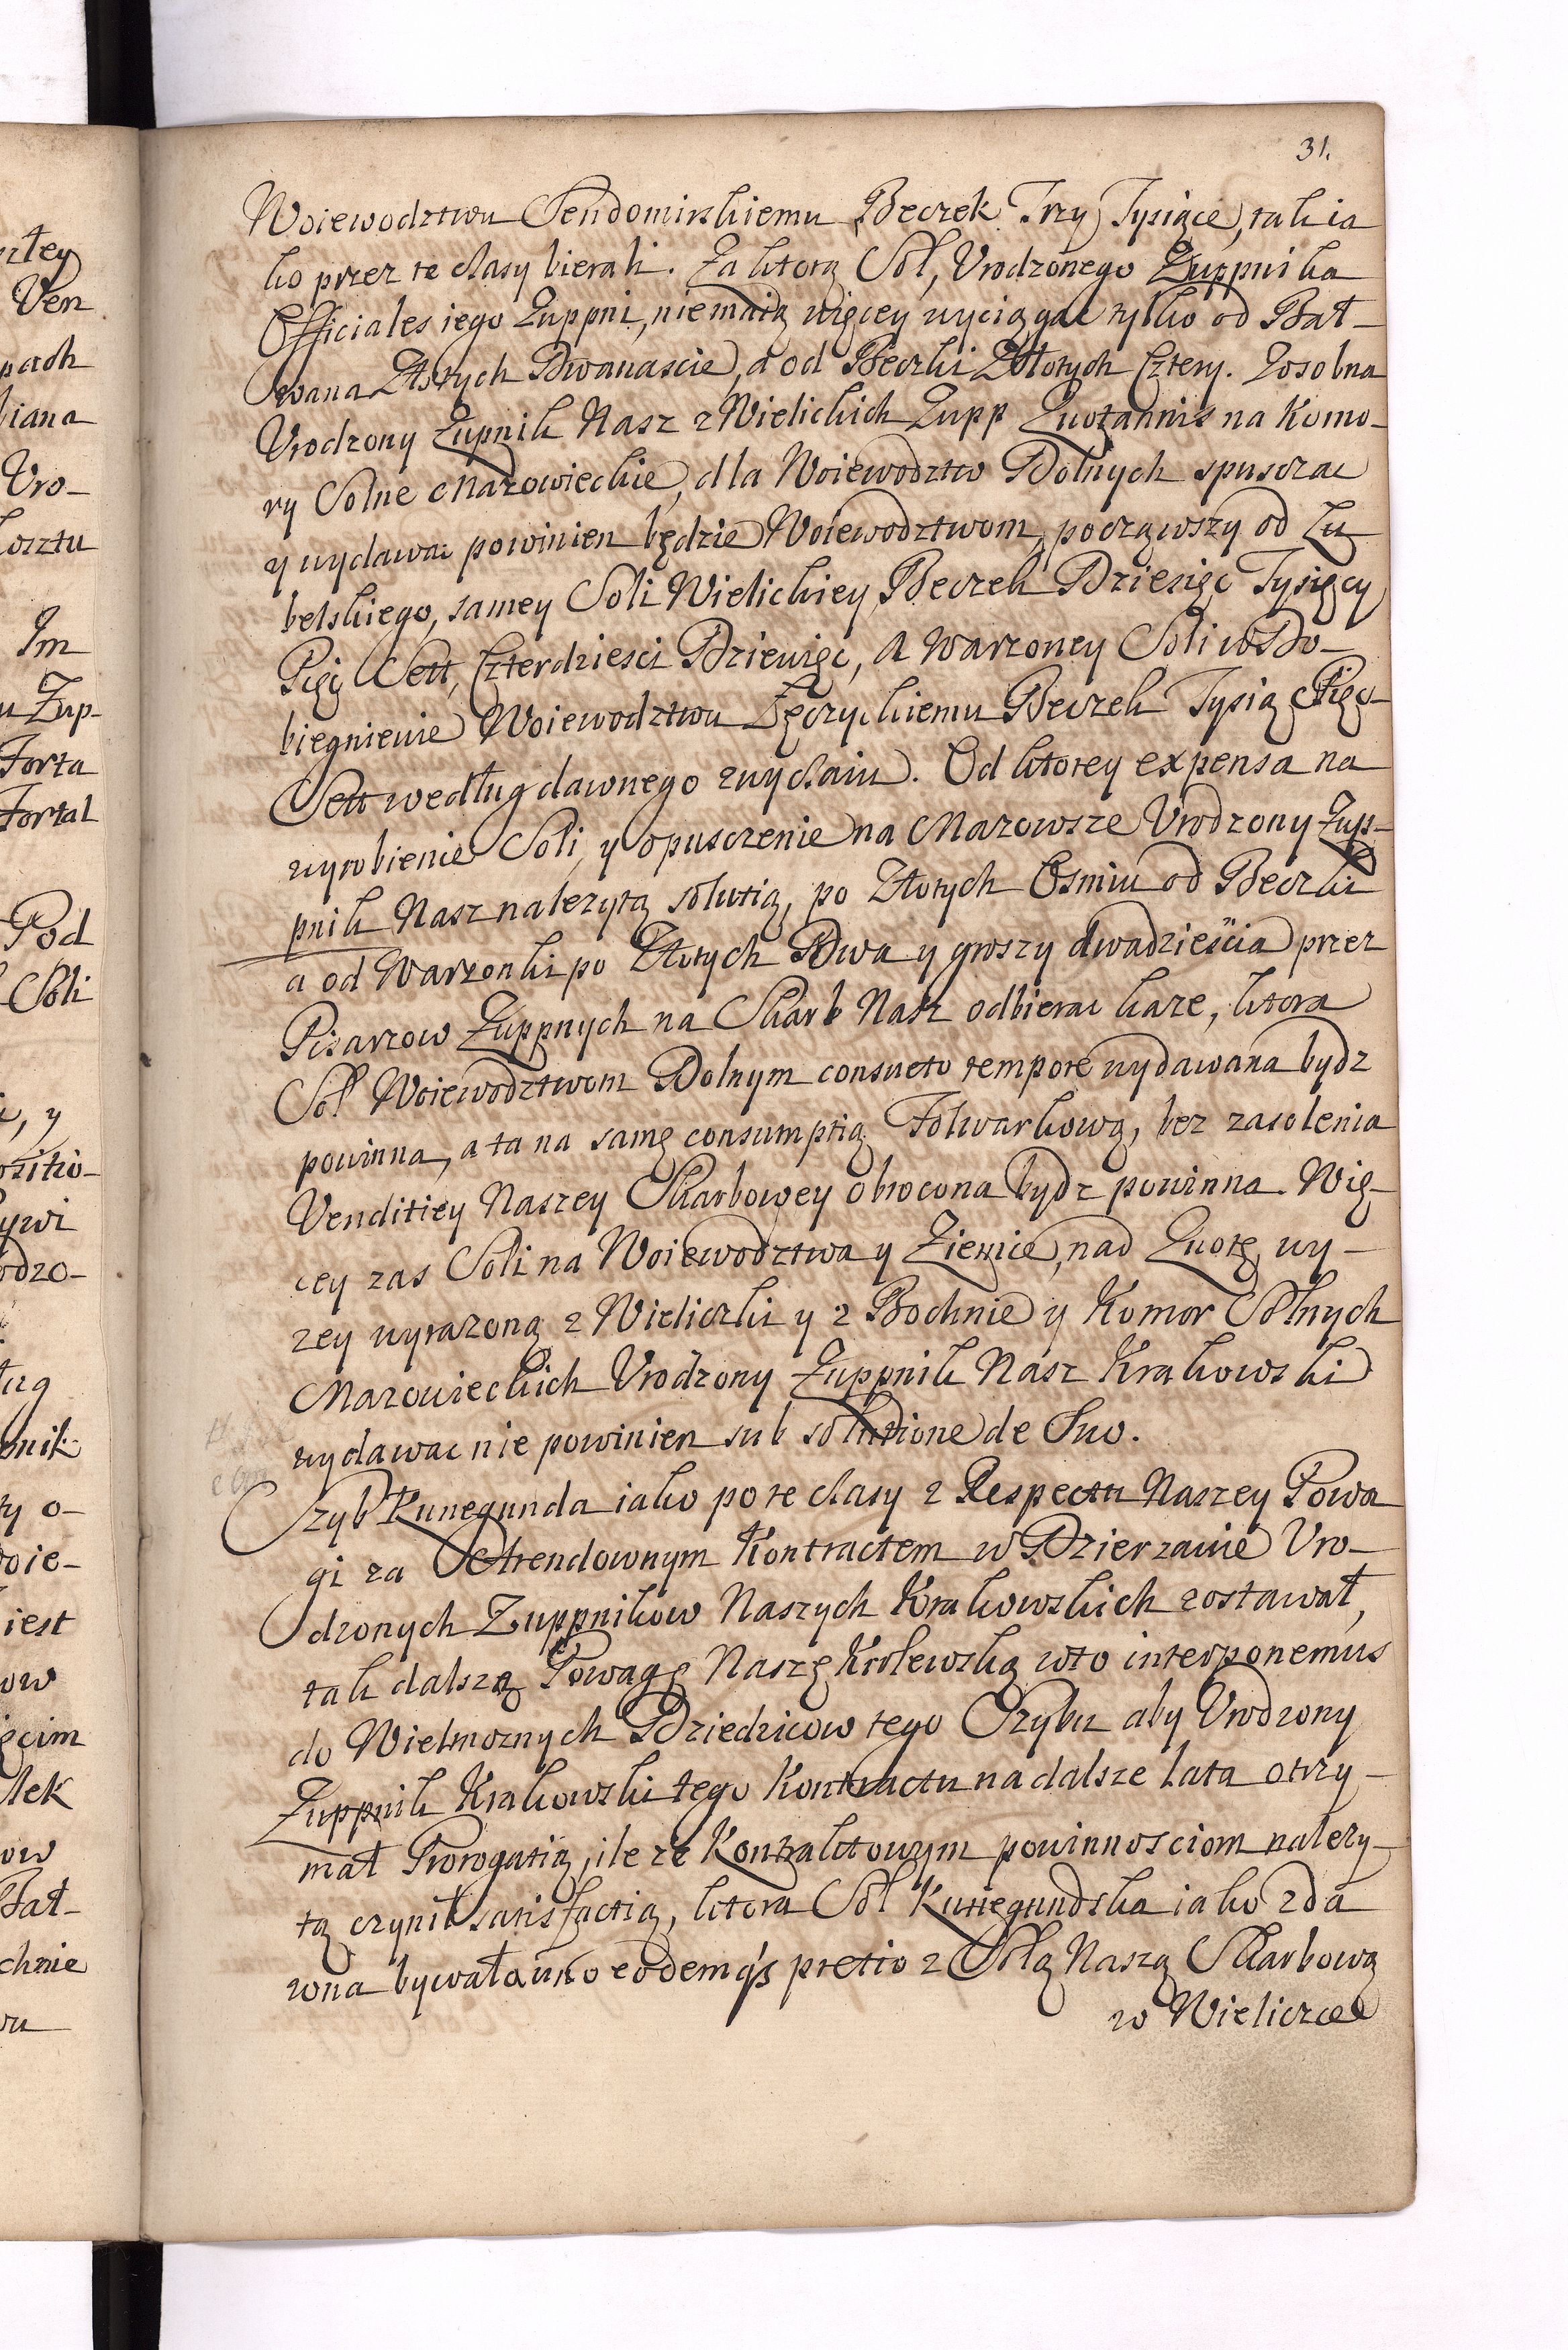 31.
Woiewodztwu Sendomirskiemu Beczek Trzy Tysiące, tak ia
ko przez te czasy bierali. Za ktorą Sol, Vrodzonego Zuppnika
Officiales iego Zuppni, niemaią więcey wyciągac tylko od Bał-
wana Złotych Dwanascie, a od Beczki Złotych Cztery. Zosobna
Vrodzony Zupnik Nasz z Wielickich Zupp Quotannis na Komo-
ry Solne Mazowieckie, dla Woiewodztw Dolnych spusczac
y wydawac powinien będzie Woiewodztwom, począwszy od Lu
belskiego, samey Soli Wielickiey Beczek Dziesięc Tysięcy
Pięc Sett, Czterdziesci Dziewięc, A Warzoney Soli w Do-
biegnienie Woiewodztwu Łęczyckiemu Beczek Tysiąc Pięc-
Sett według dawnego zwyczaiu. Od ktorey expensa na
wyrobienie Soli, y opusczenie na Mazowsze Vrodzony Zup-
pnik Nasz nalezytą solutią, po Złotych Osmiu od Beczki
a od Warzonki po Złotych Dwa y groszy dwadzieścia przez
Pisarzow Zuppnych na Skarb Nasz odbierac kaze, ktora
Sol Woiewodztwom Dolnym consueto tempore wydawana bydz
powinna, a ta na samę consumptią Folwarkową, bez zasolenia
Venditiey Naszey Skarbowey obrocona bydz powinna. Wię-
cey zas Soli na Woiewodztwa y Ziemie, nad Quotę, wy-
zey wyrazoną z Wieliczki y z Bochnie y Komor Solnych
Mazowieckich Vrodzony Zuppnik Nasz Krakowski
wydawac nie powinien sub solutione de Suo.
Szyb Kunegunda iako po te czasy z Respectu Naszey Powa
gi za Arendownym Kontractem w Dzierzawie Vro-
dzonych Zuppnikow Naszych Krakowskich zostawał,
tak dalszą Powagę Naszę Krolewską wto interponemus
do Wielmoznych Dziedzicow tego Szybu aby Vrodzony
Zuppnik Krakowski tego Kontractu na dalsze lata otrzy-
mał Prorogatią, ile ze Kontraktowym powinnosciom nalezy-
tą czynił satisfactią, ktora Sol Kunegundska iako zda
wna bywała uno eodemq's pretio z Solą Naszą Skarbową
w Wieliczce